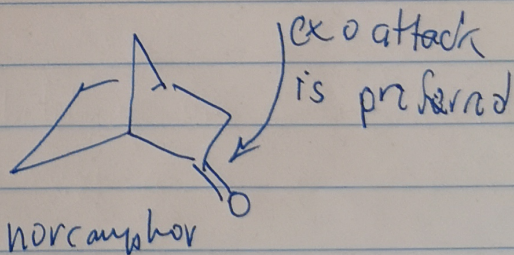 exo attack
is preferred
O
norcamphor